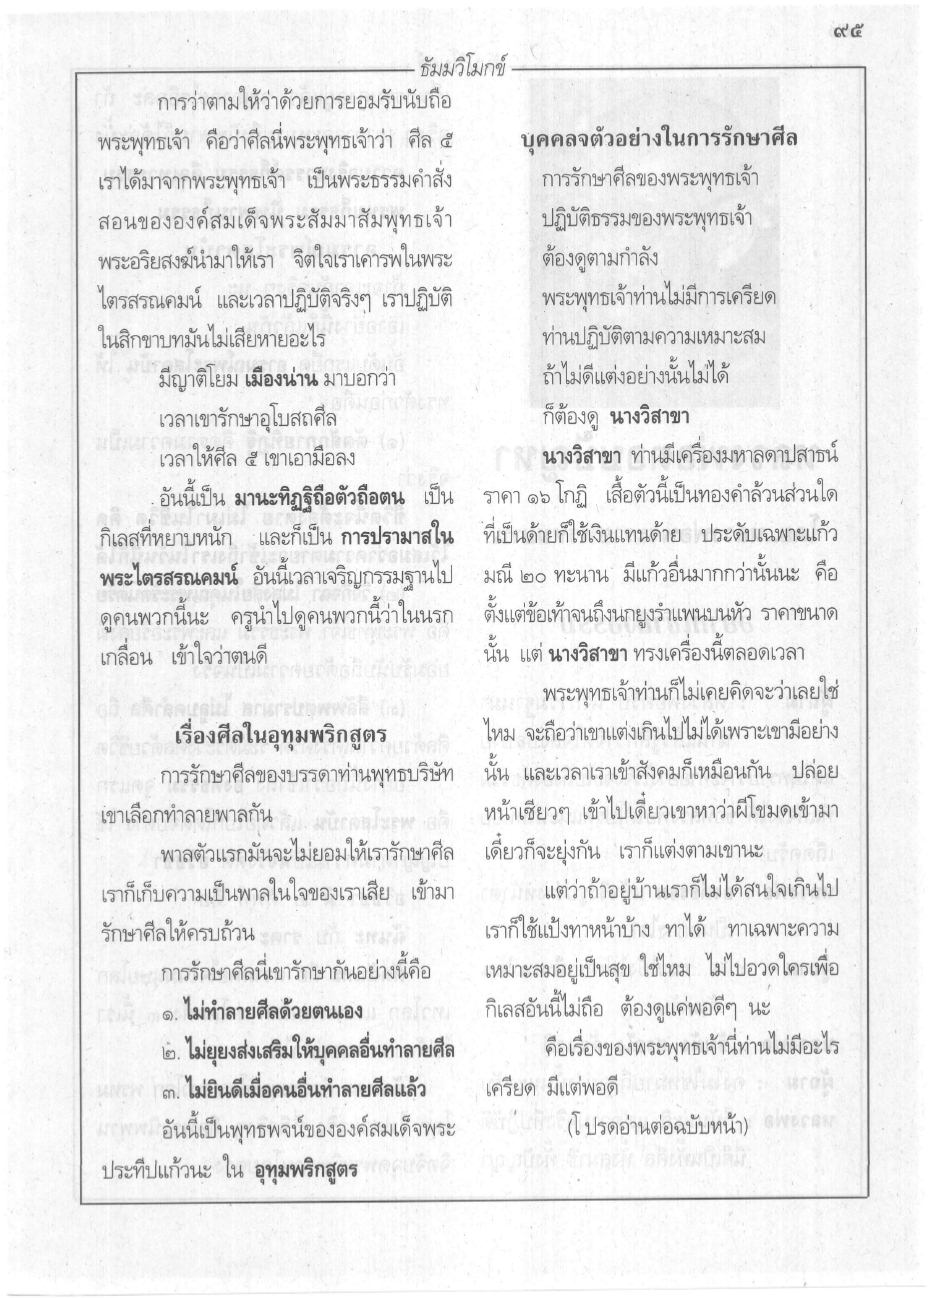 ๙๕
ธัมมวิโมกข์
การว่าตามให้ว่าด้วยการยอมรับนับถือ
พระพุทธเจ้า คือว่าศีลนี่พระพุทธเจ้าว่า ศีล ๕
เราได้มาจากพระพุทธเจ้า เป็นพระธรรมคำสั่ง
สอนขององค์สมเด็จพระสัมมาสัมพุทธเจ้า
พระอริยสงฆ์นำมาให้เรา จิตใจเราเคารพในพระ
ไตรสรณคมน์ และเวลาปฏิบัติจริงๆ เราปฏิบัติ
ในสิกขาบทมันไม่เสียหายอะไร
มีญาติโยม เมืองน่าน มาบอกว่า
เวลาเขารักษาอุโบสถศีล
เวลาให้ศีล ๕ เขาเอามือลง
อันนี้เป็น มานะทิฏฐิถือตัวถือตน เป็น
กิเลสที่หยาบหนัก และก็เป็น การปรามาสใน
พระไตรสรณคมน์ อันนี้เวลาเจริญกรรมฐานไป
ดูคนพวกนี้นะ ครูนำไปดูคนพวกนี้ว่าในนรก
เกลื่อน เข้าใจว่าตนดี
เรื่องศีลในอุทุมพริกสูตร
การรักษาศีลของบรรดาท่านพุทธบริษัท
เขาเลือกทำลายพาลกัน
พาลตัวแรกมันจะไม่ยอมให้เรารักษาศีล
เราก็เก็บความเป็นพาลในใจของเราเสีย เข้ามา
รักษาศีลให้ครบถ้วน
การรักษาศีลนี่เขารักษากันอย่างนี้คือ
๑. ไม่ทำลายศีลด้วยตนเอง
๒. ไม่ยุยงส่งเสริมให้บุคคลอื่นทำลายศีล
๓. ไม่ยินดีเมื่อคนอื่นทำลายศีลแล้ว
อันนี้เป็นพุทธพจน์ขององค์สมเด็จพระ
ประทีปแก้วนะ ใน อุทุมพริกสูตร
บุคคลจตัวอย่างในการรักษาศีล
การรักษาศีลของพระพุทธเจ้า
ปฏิบัติธรรมของพระพุทธเจ้า
ต้องดูตามกำลัง
พระพุทธเจ้าท่านไม่มีการเครียด
ท่านปฏิบัติตามความเหมาะสม
ถ้าไม่ดีแต่งอย่างนั้นไม่ได้
ก็ต้องดู นางวิสาขา
นางวิสาขา ท่านมีเครื่องมหาลดาปสาธน์
ราคา ๑๖ โกฏิ เสื้อตัวนี้เป็นทองคำล้วนส่วนใด
ที่เป็นด้ายก็ใช้เงินแทนด้าย ประดับเฉพาะแก้ว
มณี ๒๐ ทะนาน มีแก้วอื่นมากกว่านั้นนะ คือ
ตั้งแต่ข้อเท้าจนถึงนกยูงรำแพนบนหัว ราคาขนาด
นั้น แต่ นางวิสาขา ทรงเครื่องนี้ตลอดเวลา
พระพุทธเจ้าท่านก็ไม่เคยคิดจะว่าเลยใช่
ไหม จะถือว่าเขาแต่งเกินไปไม่ได้เพราะเขามีอย่าง
นั้น และเวลาเราเข้าสังคมก็เหมือนกัน ปล่อย
หน้าเซียวๆ เข้าไปเดี๋ยวเขาหาว่าผีโขมดเข้ามา
เดี๋ยวก็จะยุ่งกัน เราก็แต่งตามเขานะ
แต่ว่าถ้าอยู่บ้านเราก็ไม่ได้สนใจเกินไป
เราก็ใช้แป้งทาหน้าบ้าง ทาได้ ทาเฉพาะความ
เหมาะสมอยู่เป็นสุข ใช่ไหม ไม่ไปอวดใครเพื่อ
กิเลสอันนี้ไม่ถือ ต้องดูแค่พอดีๆ นะ
คือเรื่องของพระพุทธเจ้านี่ท่านไม่มีอะไร
เครียด มีแต่พอดี
(โปรดอ่านต่อฉบับหน้า)